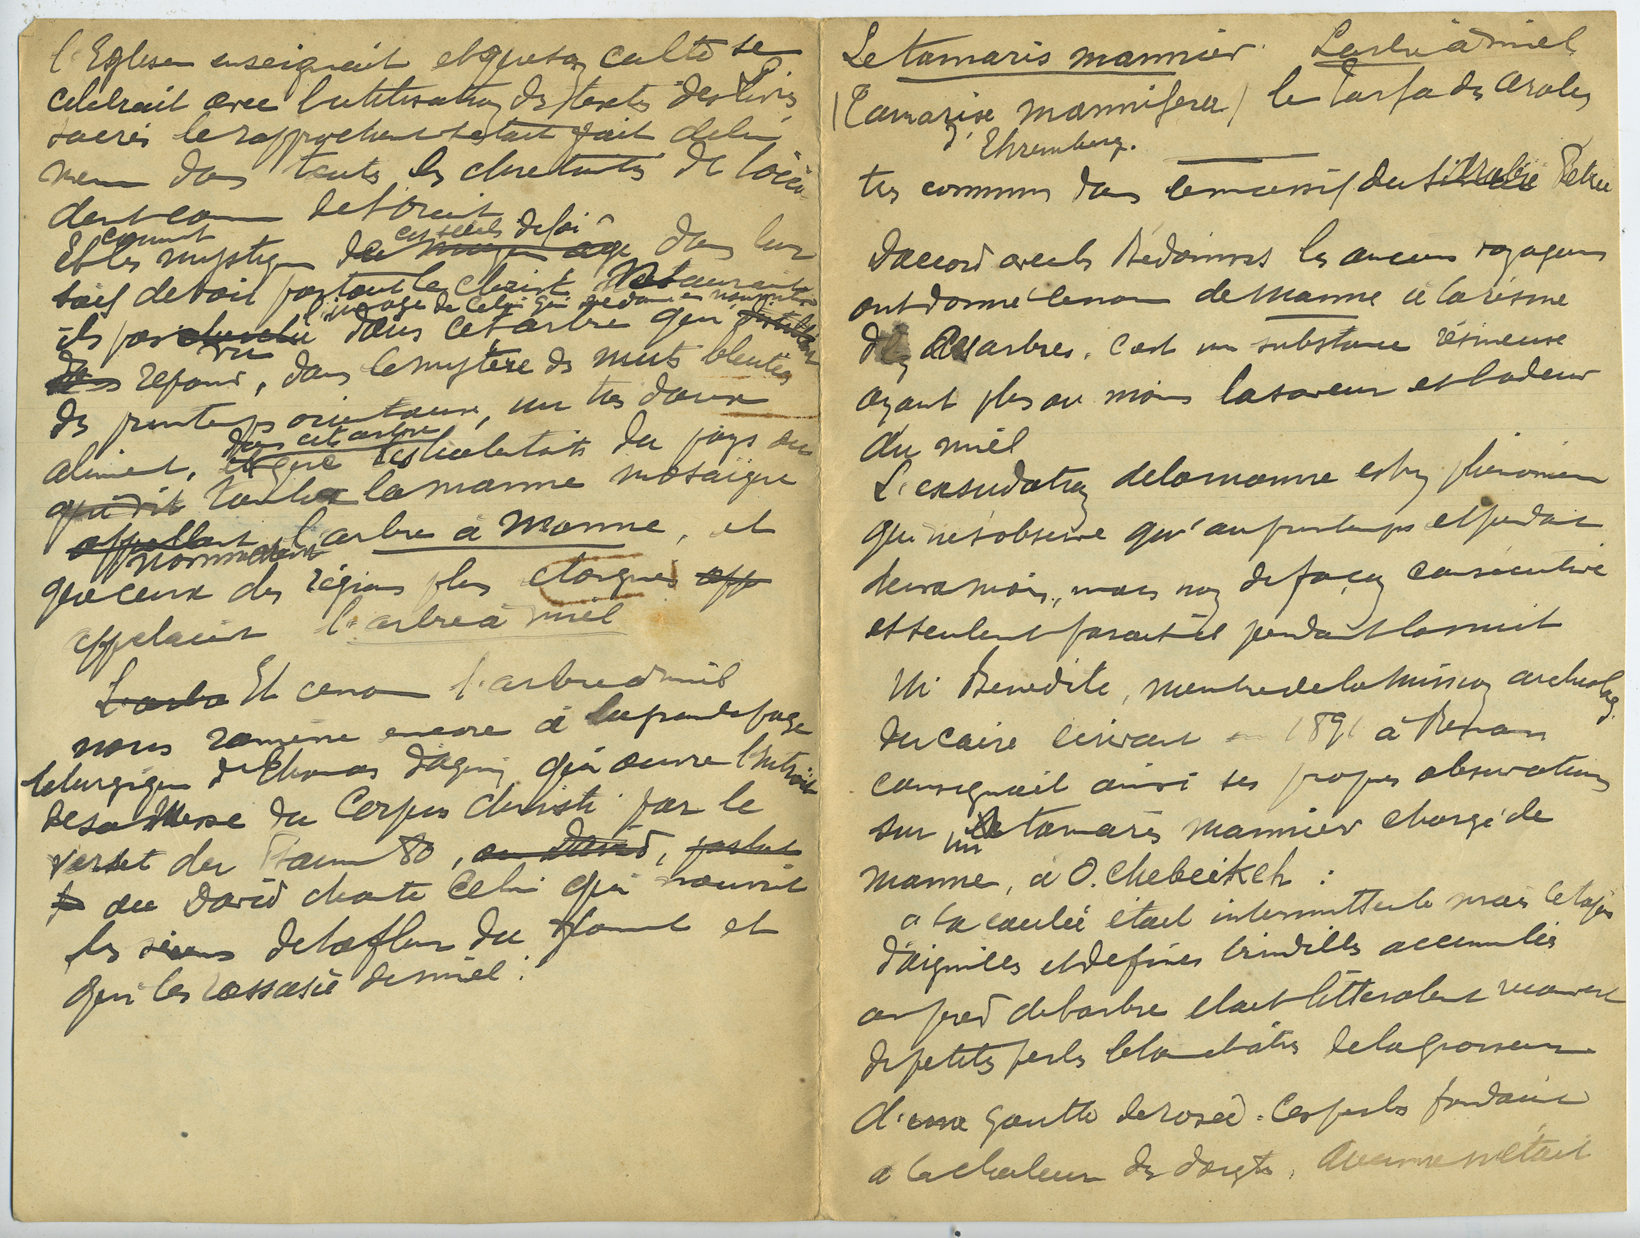 l'Eglise enseignait et que son culte se
célébrait avec l'utilisation des textes des Livres
sacrés le rapprochement s'était fait de lui
meme dans toutes les chretientés de l'occi
dent comme de l'orient
connut ces siècles de foi
Et les mystiques du moyen age dans leur
soif de voir partout le Christ
l'image de Celui qui se donne en nourriture
ils par cherché dans cet arbre qui
vu
repand, dans le mystère des nuits bleutées
des printemps orientaux, un tres doux
dans cet arbre
aliment, et que les habitants du pays ou
qu'on dit tomba la manne mosaïque
appellent l'arbre à Manne, et
nommaient
que ceux des régions plus eloignés app
appelaient l'arbre à miel
L'arbre Et ce nom l'arbre à miel
nous ramène encore à la grande page
liturgique de Thomas d'Aquin qui ouvre l'Introït
de sa Messe du Corpus christi par le
verset du Psaume 80, ou David, parlant
p ou David chante Celui qui nourrit
les siens de la fleur du froment et
qui les rassasie de miel :
Le tamaris mannier. L'arbre à miel
(Tamarise mannifera) le Tarfa des Arabes
d'Ehremberg.
tres commun dans le massif du Arabie Petrée
D'accord avec les Bédouins les anciens voyageurs
ont donné le nom de Manne à la résine
de arbres. C'est une substance résineuse
ayant plus ou moins la saveur et l'odeur
du miel
L'exsudation de la manne est un phénomène
qui ne s'observe qu'au printemps et pendant
deux mois, mais non de façon consécutive
et seulement parait-il pendant la nuit
Mr Bénédite, membre de la Mission archeolog.
du Caire écrivant en 1891 à Renan
consignait ainsi ses propres observations
sur le tamaris mannier chargé de
un
manne, à O. Chebeikeh :
"La coulée était intermittente mais le tapis
d'aiguilles et de fines brindilles accumulées
au pied de l'arbre etait littéralement recouvert
de petites perles blanchâtres de la grosseur
d'une goutte de rosée. Ces perles fondaient
à la chaleur des doigts. Aucune n'était